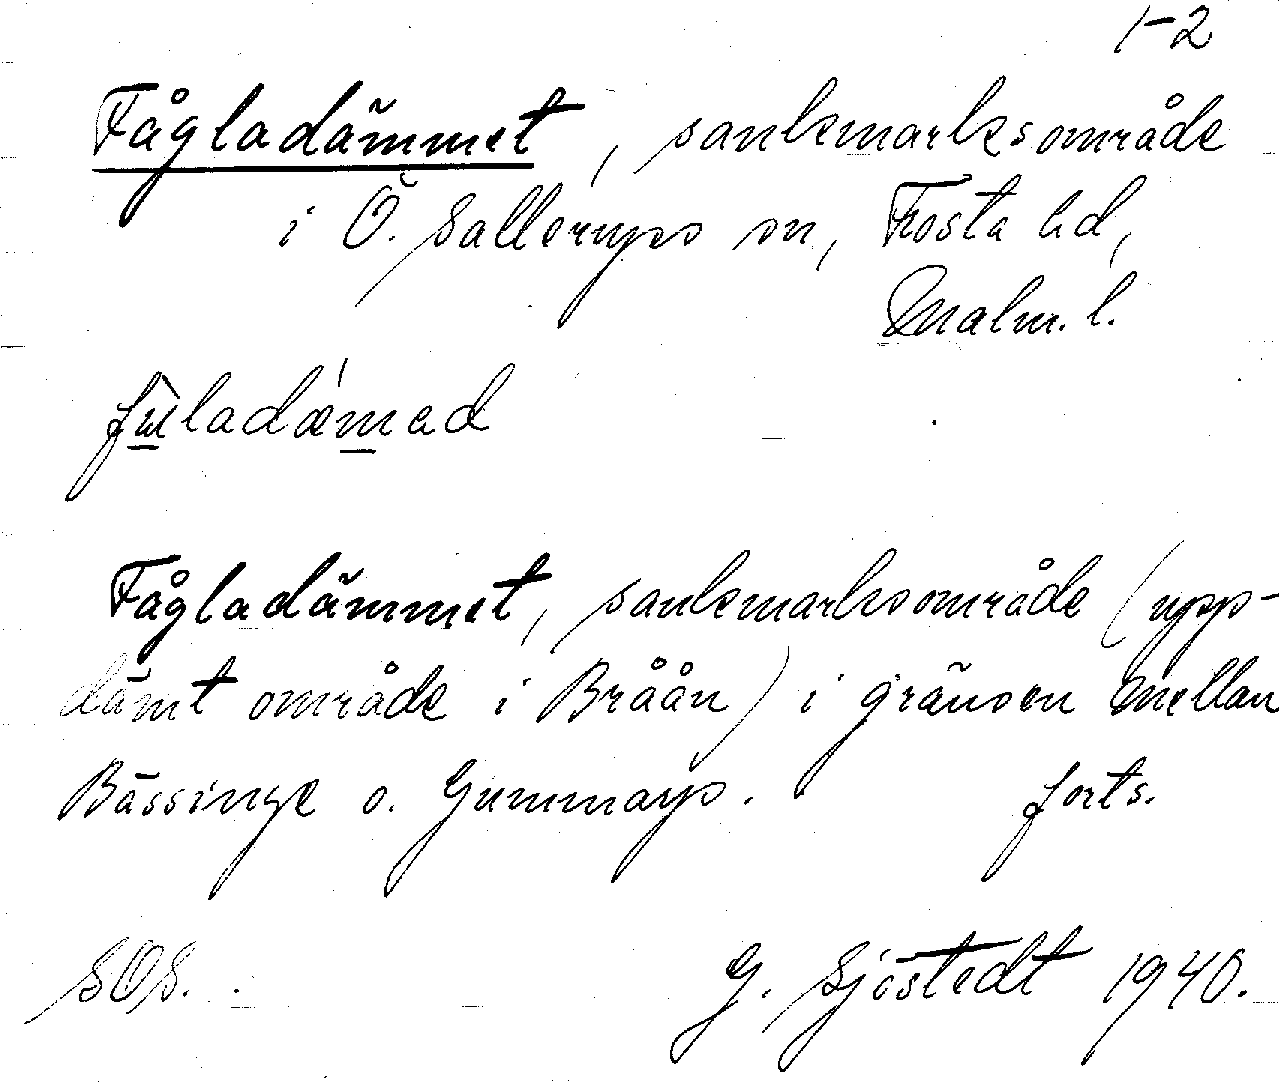 1-2
Fågladämmet, sanksmarksområde
i Ö. Sallerups sn, Frosta hd,
Malm. l.
Fågladämmet, sanksmarksområde (upp-
dämt område i Bråån) i gränsen mellan
Bässinge o. Gummarp. forts.
SOS. G. Sjöstedt 1940.